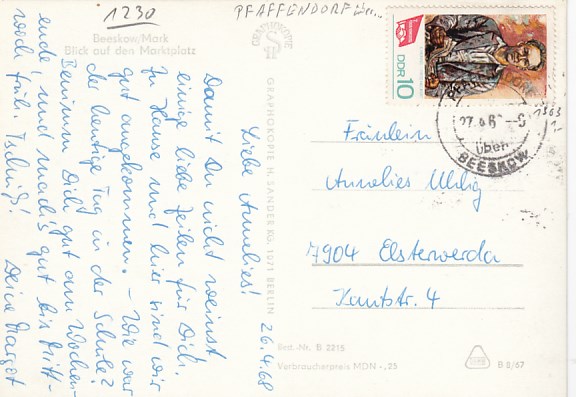 1230
PFAFFENDORF über...
Beeskow/Mark
Blick auf den Marktplatz
26.4.68
Liebe Annelies!
Damit Du nicht weinst
einige liebe Zeilen für Dich.
Zu Hause und hier sind wir
gut angekommen. – Wie war
der heutige Tag in der Schule?
Benimm Dich gut am Wochen-
ende, und mach's gut bis Mitt-
woch früh. Tschüß!
Deine Margot
GRAPHOKOPIE
GRAPHOKOPIE H. SANDER KG. 1071 BERLIN
DDR 10
über
BEESKOW
1363
Fräulein
Annelies Uhlig
7904 Elsterwerda
Kantstr. 4
Best.-Nr. B 2215
Verbraucherpreis MDN -,25
B 8/67